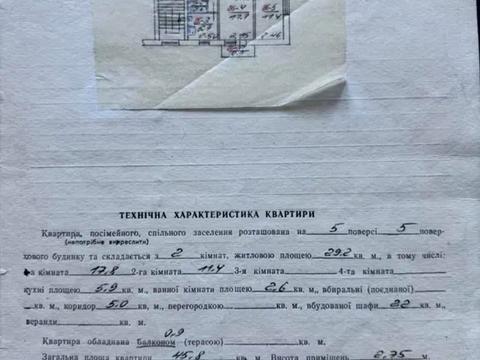 36-4
17.8
36-5
11.4
ТЕХНІЧНА ХАРАКТЕРИСТИКА КВАРТИРИ
Квартира, посімейного, спільного заселення розташована на 5 поверсі 5 повер-
(непотрібне викреслити)
хового будинку та складається з 2 кімнат, житловою площею 29.2 кв. м., в тому числі:
1-а кімната 17.8 2-га кімната 11.4 3-я кімната 4-та кімната
кухні площею 5.9 кв. м., ванної кімнати 2.6 кв. м., вбиральні (поєднаної)
кв. м., коридор 5.0 кв. м., перегородкою кв. м., вбудованої шафи 22 кв. м.,
веранди кв. м.
0.9
Квартира обладнана Балконом (терасою) кв. м.
Загальна площа квартири 45.8 кв. м. Висота приміщень 2.75 м.